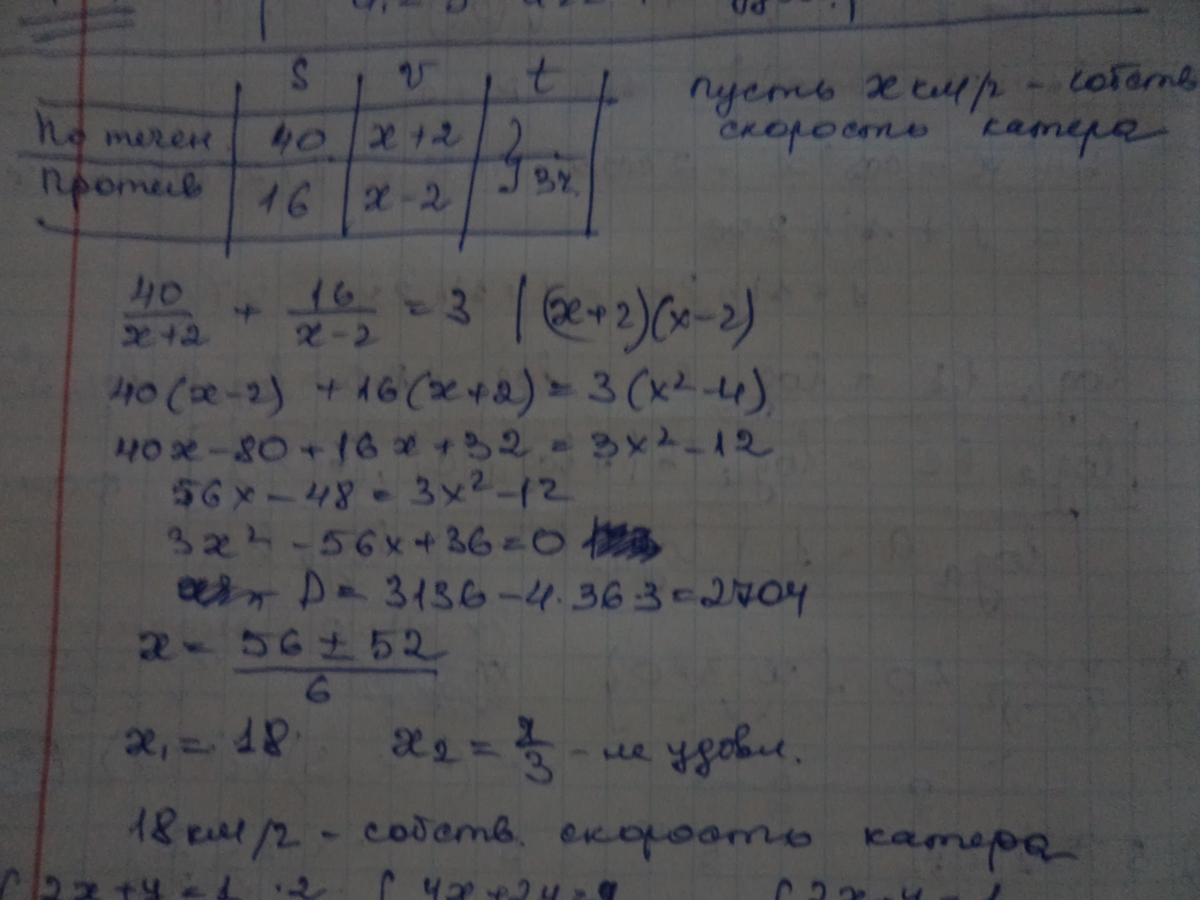 S v t
По течен 40 x+2
против 16 x-2 } 3ч.
пусть x км/г - собств
скорость катера
40/(x+2) + 16/(x-2) = 3 | (x+2)(x-2)
40(x-2) + 16(x+2) = 3(x²-4)
40x-80+16x+32 = 3x²-12
56x-48 = 3x²-12
3x²-56x+36=0
D = 3136-4·36·3=2704
x = (56 ± 52)/6
x₁ = 18 x₂ = 2/3 - не удовл.
18 км/г - собств. скорость катера